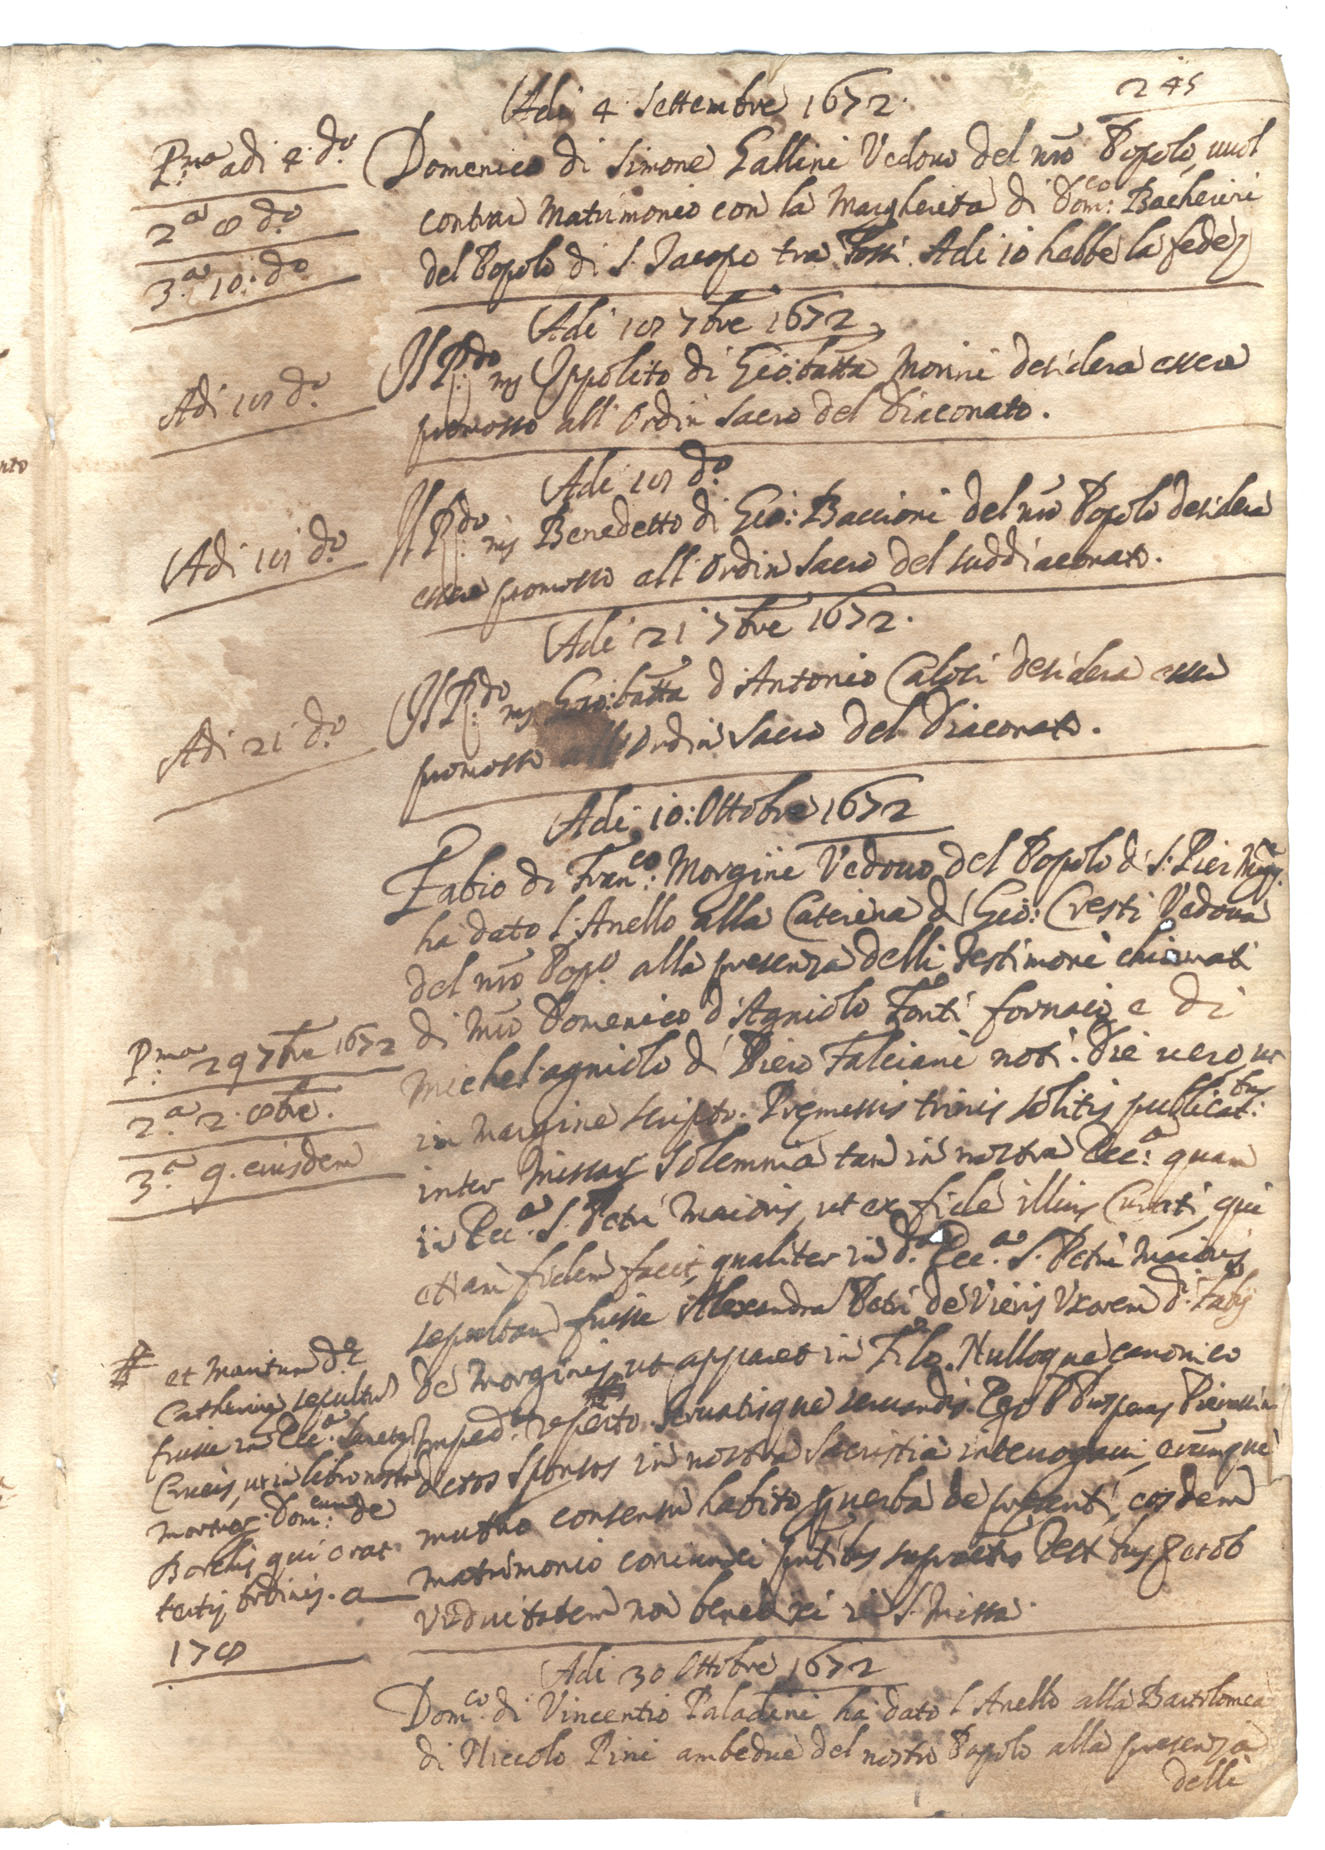 245
Adi 4 Settembre 1672.
P.ma adi 4 d.o
2.a 8 d.o
3.a 10. d.o
Domenico di Simone Gallini Vedovo del nrō Popolo, vuol
contrar Matrimonio con la Margherita di Dom.co Bacherini
del Popolo di S. Jacopo tra fossi. Adi 10 hebbe la fede
Adi 18 7bre 1672
Adi 18 d.o
Il R.do Ippolito di Gio:batta Morini desidera essere
promosso all'Ordin Sacro del Diaconato.
Adi 18 d.o
Adi 18 d.o
Il R.do Benedetto di Gio: Baccioni del nrō Popolo desidera
essere promosso all'Ordin Sacro del suddiaconato.
Adi 21 7bre 1672.
Adi 21 d.o
Il R.do Gio:batta d'Antonio Calosi desidera esser
promosso all'Ordin Sacro del Diaconato.
Adi 10: Ottobre 1672
Fabio di Fran.co Morgini Vedovo del Popolo di S. Pier Magg.
ha dato l'Anello alla Caterina di Gio: Cresti Vedova
del nrō Pop.o alla presenza delli Testimoni chiamati
di Domenico d'Agniolo Fonti fornaio e di
Michel'agniolo di Piero Falciani noti. Die vero, ut
in margine scripto. Premissis trinis solitis publicat.bus
inter Missar solemnia tam in nostra Ecc.a quam
in Ecc.a S. Petri Maioris, ut ex fide illius Curati, qui
etiam fidem facit, qualiter in d.a Ecc.a S. Petri Maioris
sepultam fuisse Alexandra Petri de Vieris Uxorem d. Fabij
de Morginis, ut apparet in Filo. # Nulloque canonico
Imped.to reperto. Servatisque servandis. Ego Prosperus
dictos Sponsos in nostra Sacristia interrogavi, eorumque
mutuo consensu habito p verba de presenti, eosdem
matrimonio coniunxi pntibus supradictis Testibus, et ob
viduitatem non benedixi in S. Missa.
P.ma 29 7bre 1672
2.a 2. 8bre.
3.a 9. eiusdem
# et Maritum d.e
Catherine sepultus
fuisse in Ecc.a Sancte
Crucis, ut in libro nostro
mortuor. Dom.cum de
qui erat
tertij Ordinis. a
178
Adi 30 Ottobre 1672
Dom.co di Vincentio Paladini ha dato l'Anello alla Bartolomea
di Niccolo Pini ambedue del nostro Popolo alla presenza
delli